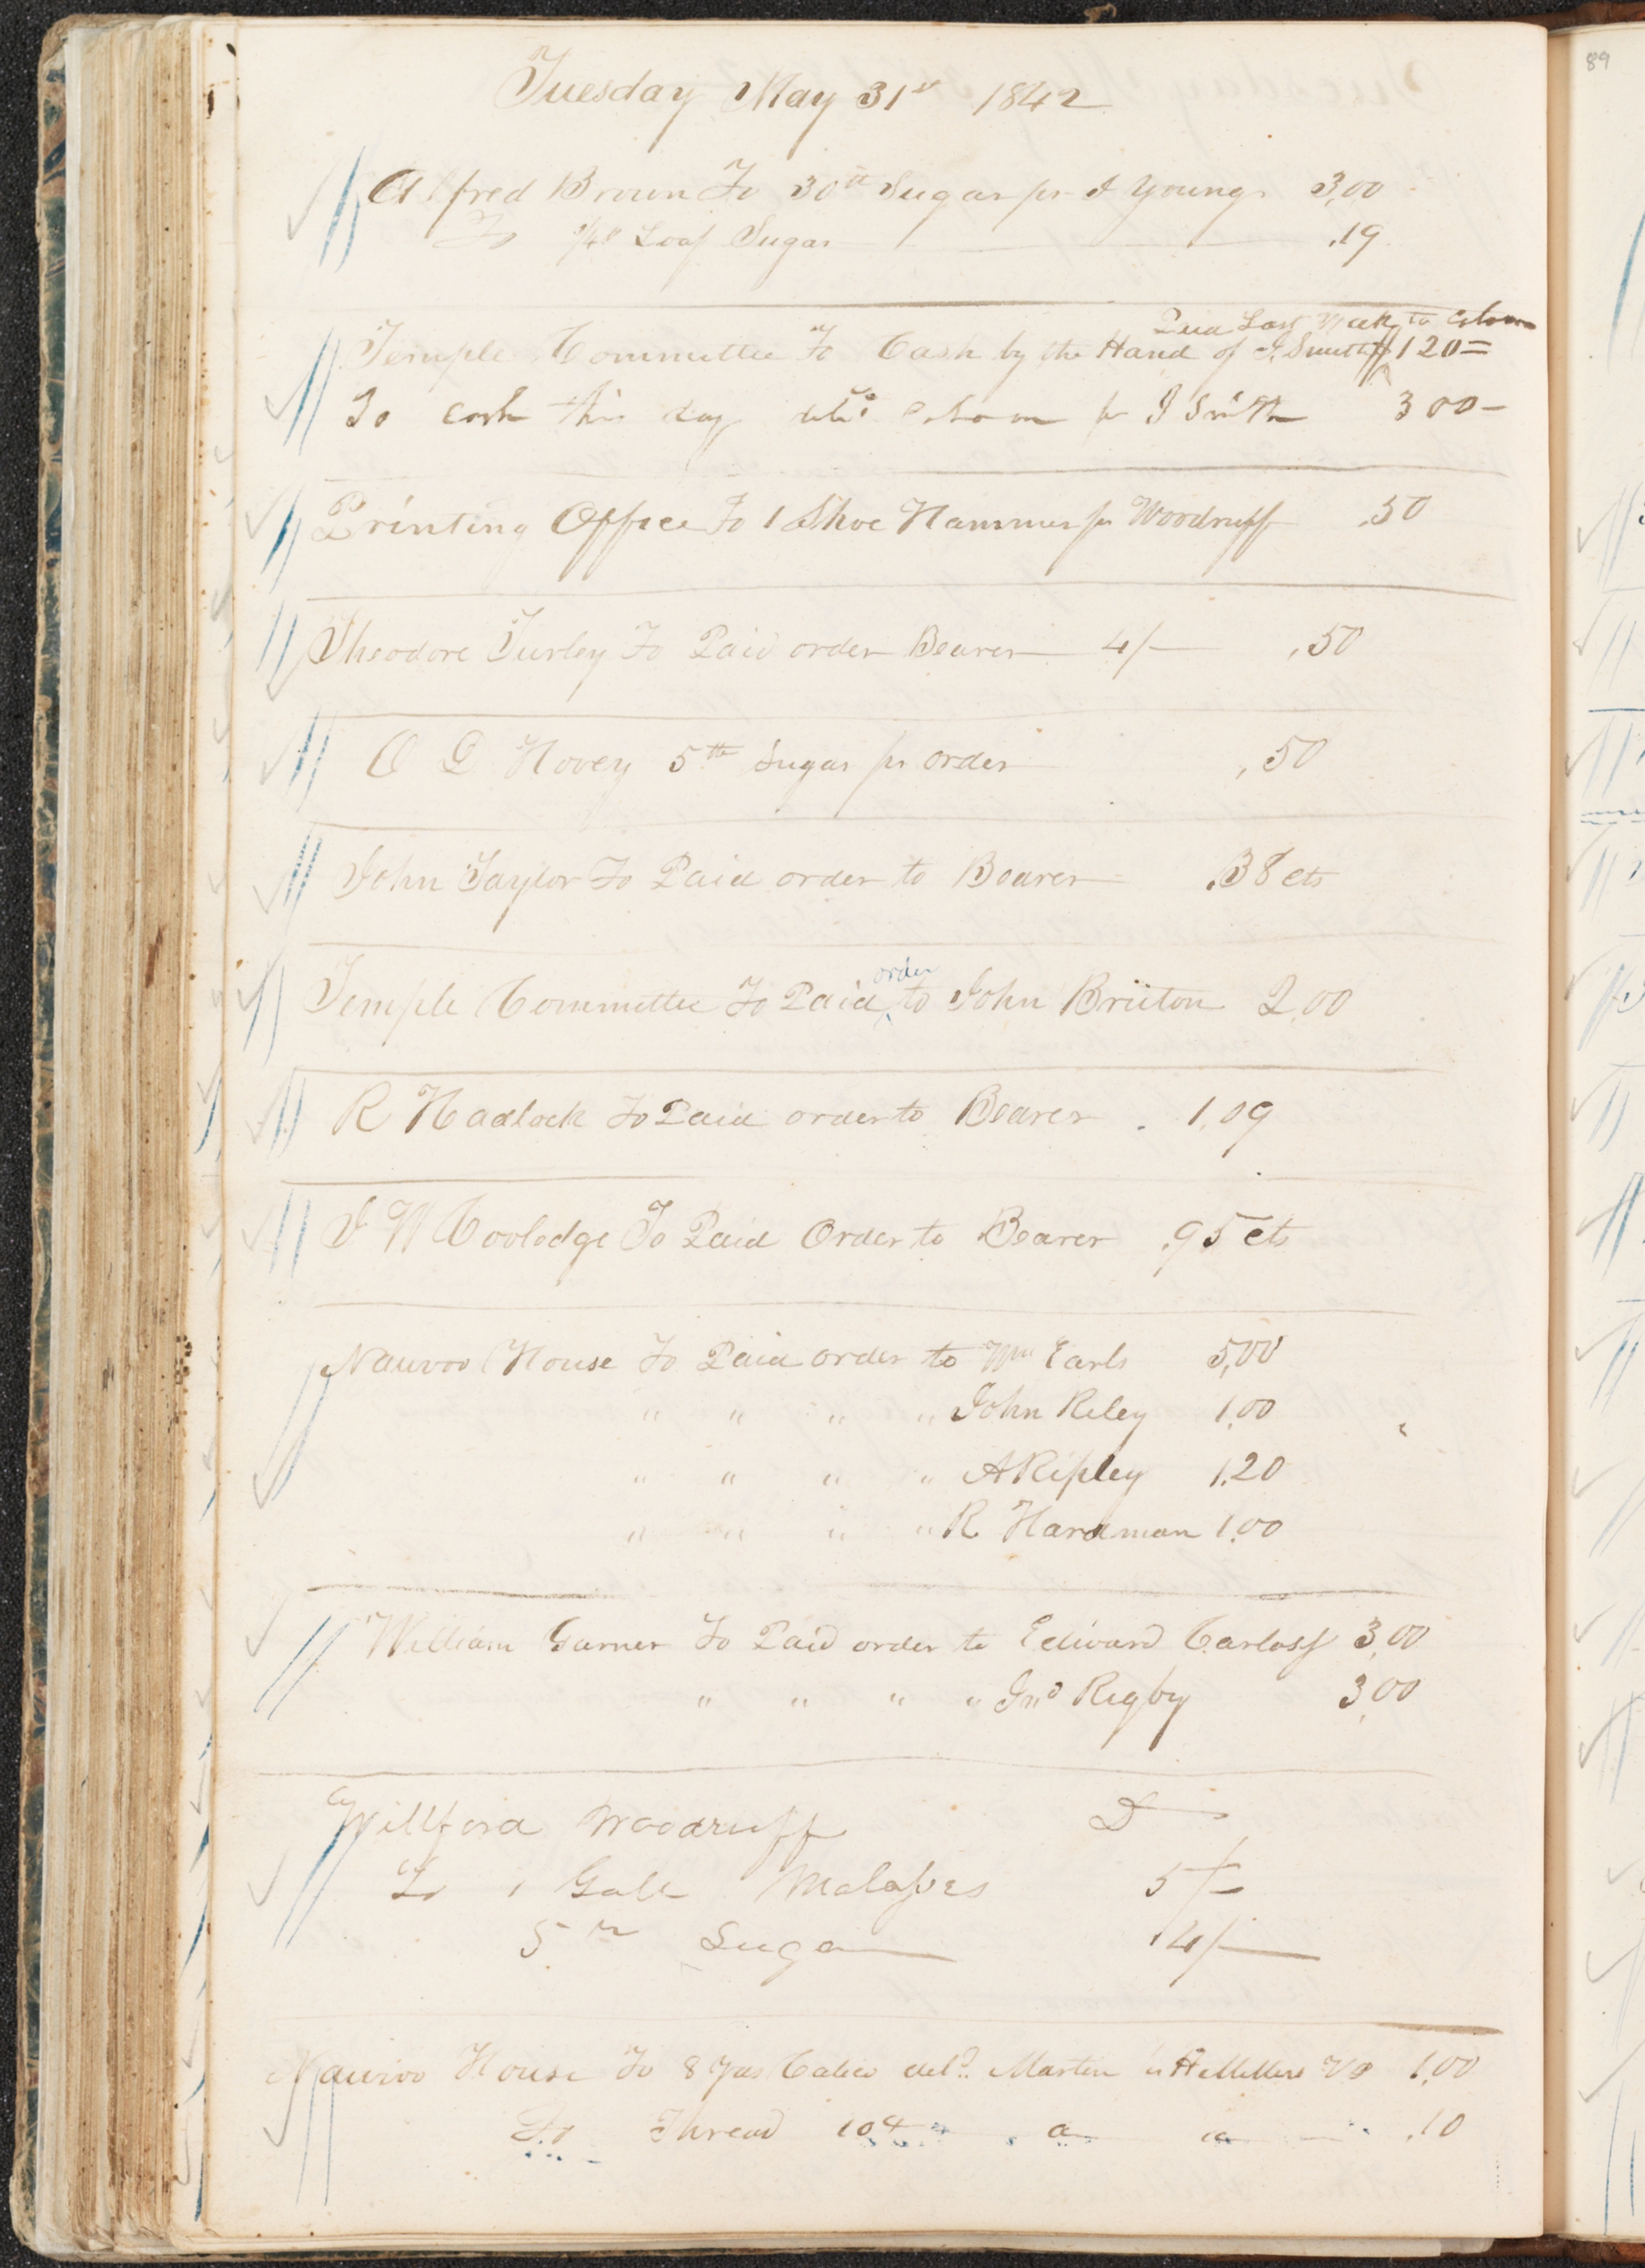 89
Tuesday May 31st 1842
Alfred Brown To 30 lb Sugar pr A Young 3,00
To Loaf Sugar .19
Paid Last Week to
Temple Committee To Cash by the Hand of J. Smith $120=
To cash this day deld pr J Smith 300-
Printing Office To 1 Shoe Hammer pr Woodruff .50
Theodore Turley To Paid order Bearer 4/- .50
O D Hovey 5 lb Sugar pr order .50
John Taylor To Paid order to Bearer .38 cts
order
Temple Committee To Paid to John Briiton 2,00
R Hadlock To Paid order to Bearer . 1,09
J W Coolodge To Paid Order to Bearer .95 cts
Nauvoo House To Paid order to Wm Earls 5,00
" " " " John Riley 1,00
" " " " A Ripley 1.20
" " " " R Hardman 1.00
William Garner To Paid order to Edward Carloss 3,00
" " " " Jno Rigby 3,00
Willford Woodruff D
To 1 Gall Molasses 5/-
5 lb Sugar 4/-
Nauvoo House To 8 Yds Calico deld Martin 1,00
To Thread 10 .10